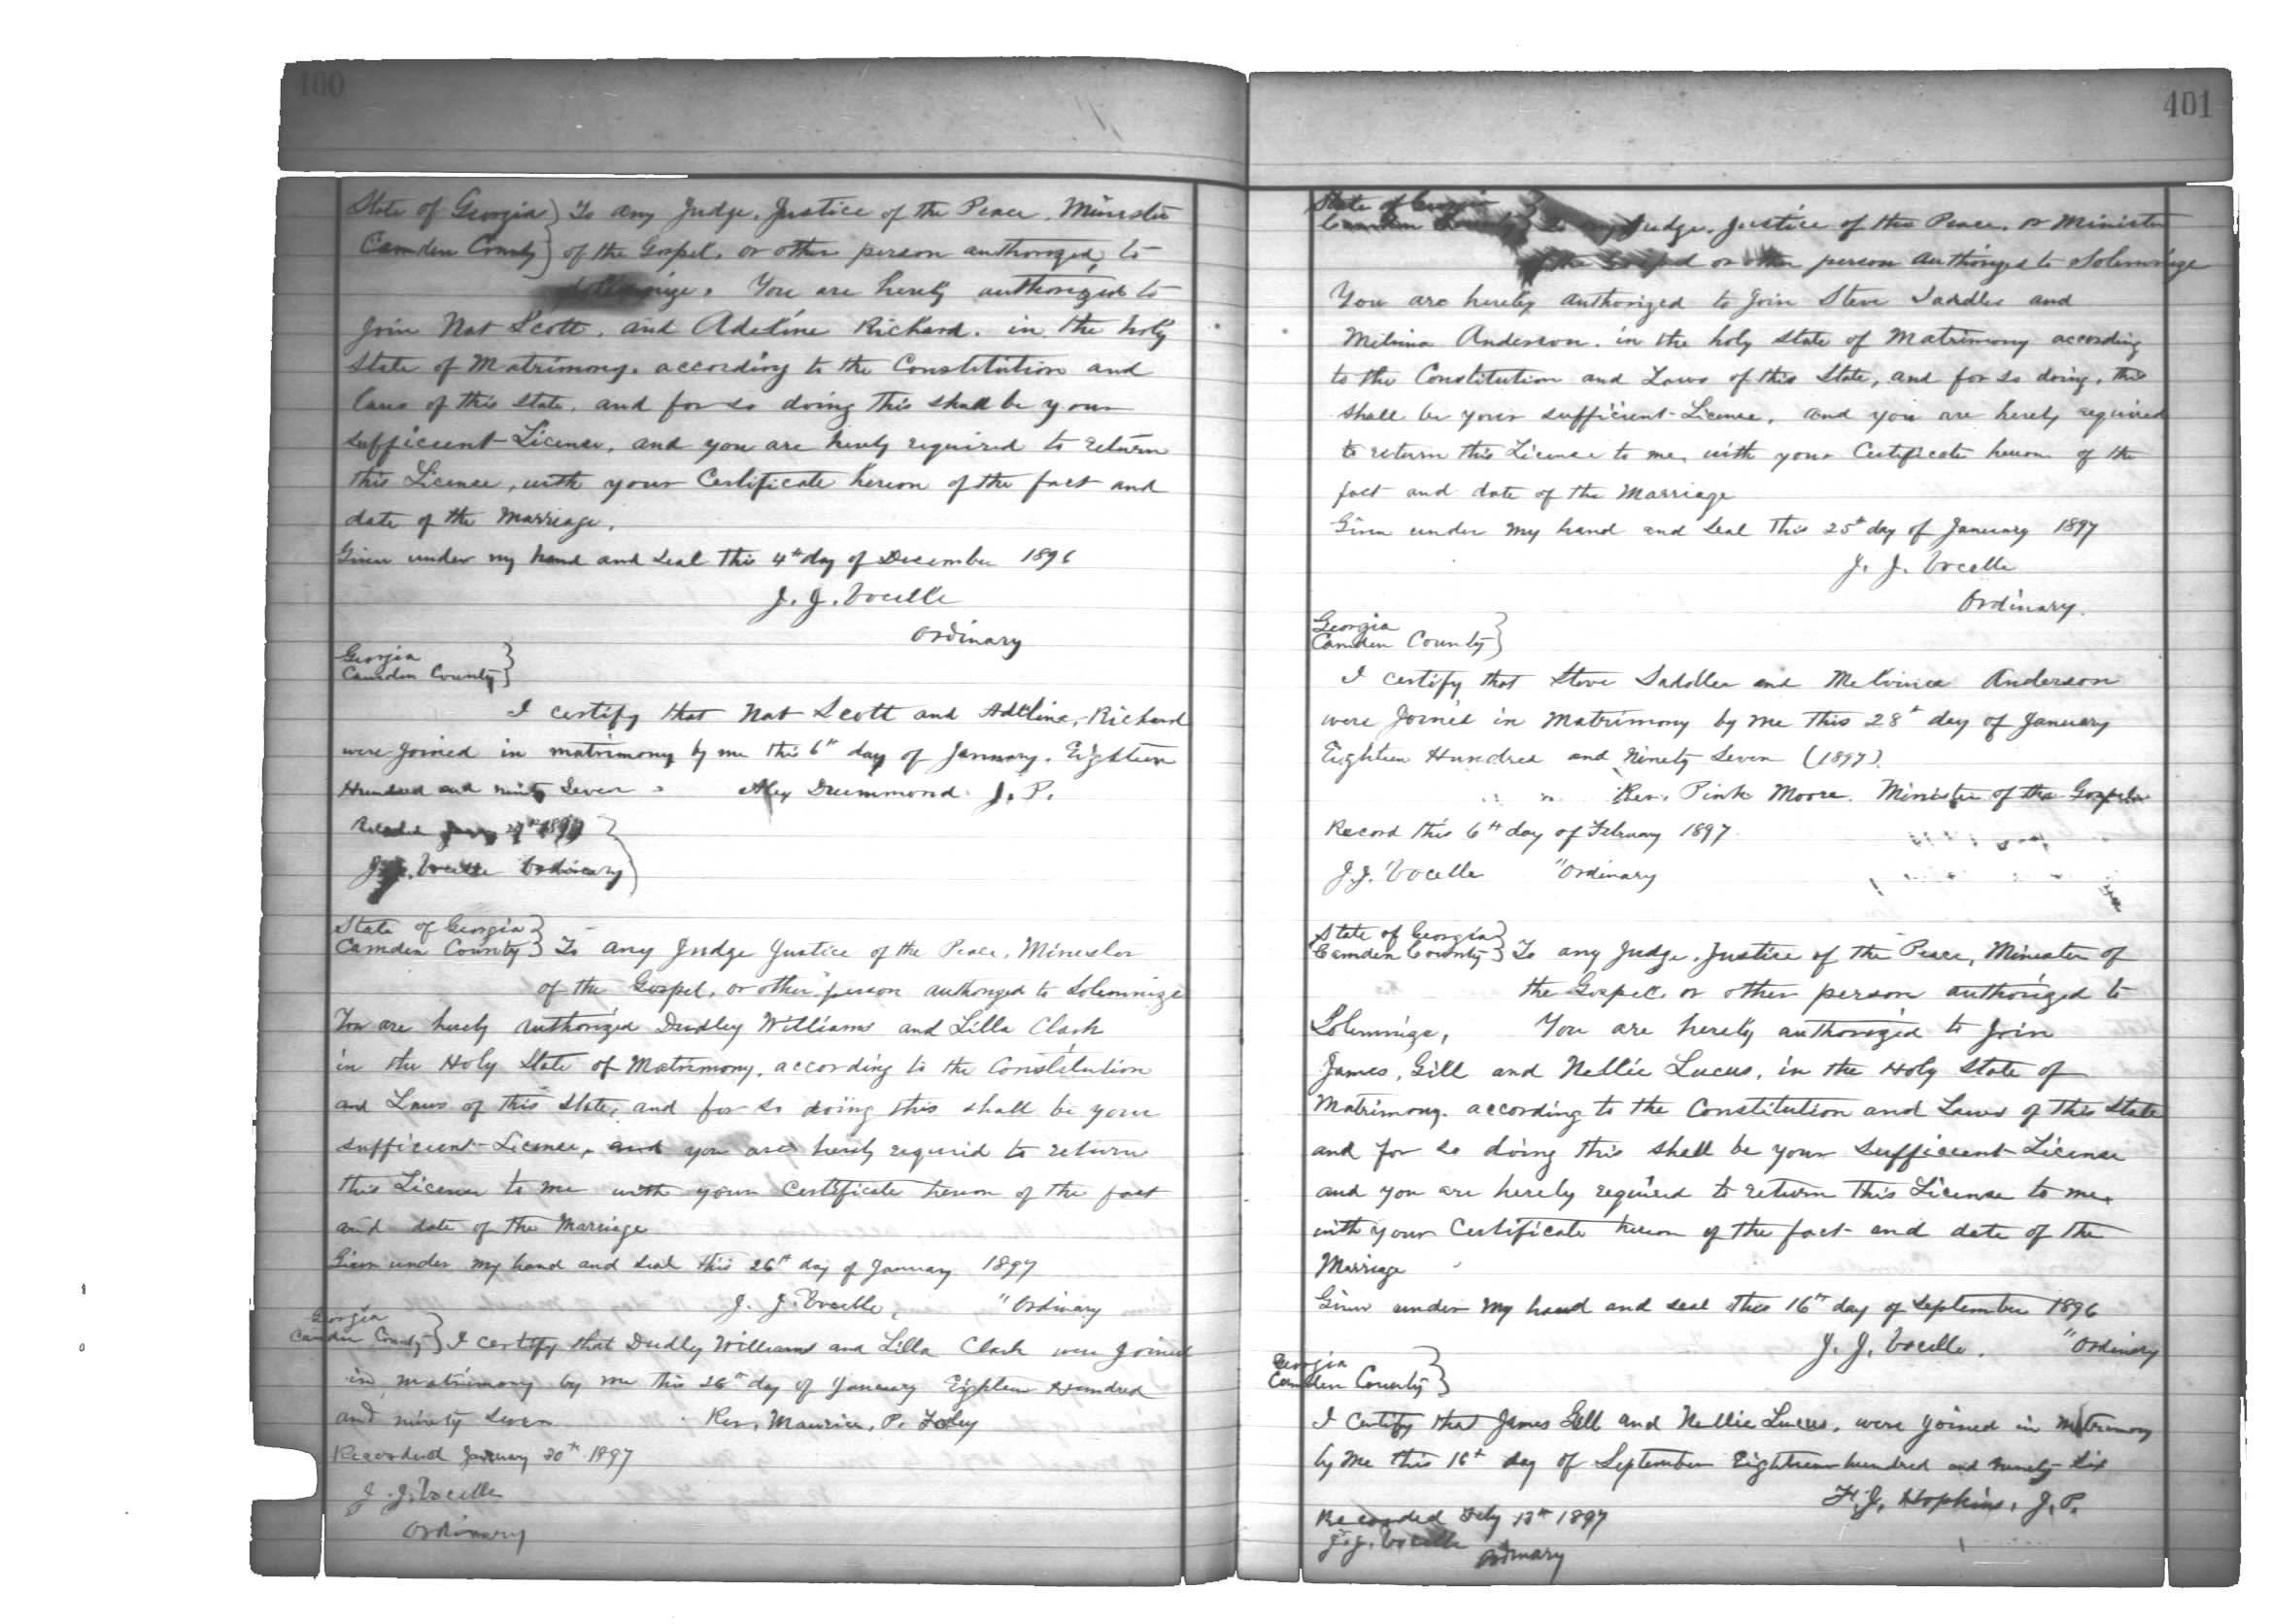 400
State of Georgia } To any Judge, Justice of the Peace, Minister
Camden County } of the Gospel, or other person authorized to
You are hereby authorized to
Join Nat Scott, and Adeline Richard, in the holy
State of Matrimony, according to the Constitution and
Laws of this State, and for so doing this shall be your
sufficient License, and you are hereby required to return
this License, with your Certificate hereon of the fact and
date of the Marriage.
Given under my hand and seal this 4th day of December 1896
J. J. Vocelle
Ordinary
Georgia
Camden County }
I certify that Nat Scott and Adeline, Richard
were joined in matrimony by me this 6th day of January, Eighteen
Hundred and ninety Seven Alex Drummond J. P.
J. J. Vocelle Ordinary
State of Georgia }
Camden County } To any Judge Justice of the Peace, Minester
of the Gospel, or other person authorized to Solemnize
You are hereby authorized Dudley Williams and Lilla Clark
in the Holy State of Matrimony, according to the Constitution
and Laws of this State, and for so doing this shall be your
sufficient License, and you are hereby required to return
this License to me with your Certificate hereon of the fact
and date of the Marriage
Given under my hand and seal this 26th day of January 1897
J. J. Vocelle, "Ordinary
Georgia
Camden County } I certify that Dudley Williams and Lilla Clark were Joined
in matrimony by me this 26th day of January Eighteen Hundred
and ninety Seven Rev, Maurice, P. Foley
Recorded January 30th 1897
J. J. Vocelle
Ordinary
401
State of Georgia
Camden County } To any Judge, Justice of the Peace, or Minister
of the Gospel or other person authorized to Solemnize
You are hereby authorized to join Steve Saddler and
Melvina Anderson, in the holy State of Matrimony according
to the Constitution and Laws of this State, and for so doing, this
shall be your sufficient License, and you are hereby required
to return this License to me, with your Certificate hereon of the
fact and date of the Marriage
Given under my hand and seal this 25th day of January 1897
J. J. Vocelle
Ordinary.
Georgia
Camden County }
I certify that Steve Saddler and Melvina Anderson
were Joined in Matrimony by me this 28th day of January
Eighteen Hundred and Ninety Seven (1897).
Rev. Pink Moore, Minister of the Gospel
Record this 6th day of February 1897
J. J. Vocelle "Ordinary
State of Georgia }
Camden County } To any Judge, Justice of the Peace, Minister of
the Gospel, or other person authorized to
Solemnize, You are hereby authorized to join
James, Gill and Nellie Lucus, in the Holy State of
Matrimony, according to the Constitution and Laws of this State
and for so doing this shall be your sufficient License
and you are hereby required to return this License to me,
with your Certificate hereon of the fact and date of the
Marriage
Given under my hand and seal this 16th day of September 1896
J. J. Vocelle. "Ordinary
Georgia
Camden County }
I Certify that James Gill and Nellie Lucus, were joined in Matrimony
by me this 16th day of September Eighteen hundred and ninety Six
H. J. Hopkins, J. P.
Recorded Feby 13th 1897
J. J. Vocelle Ordinary